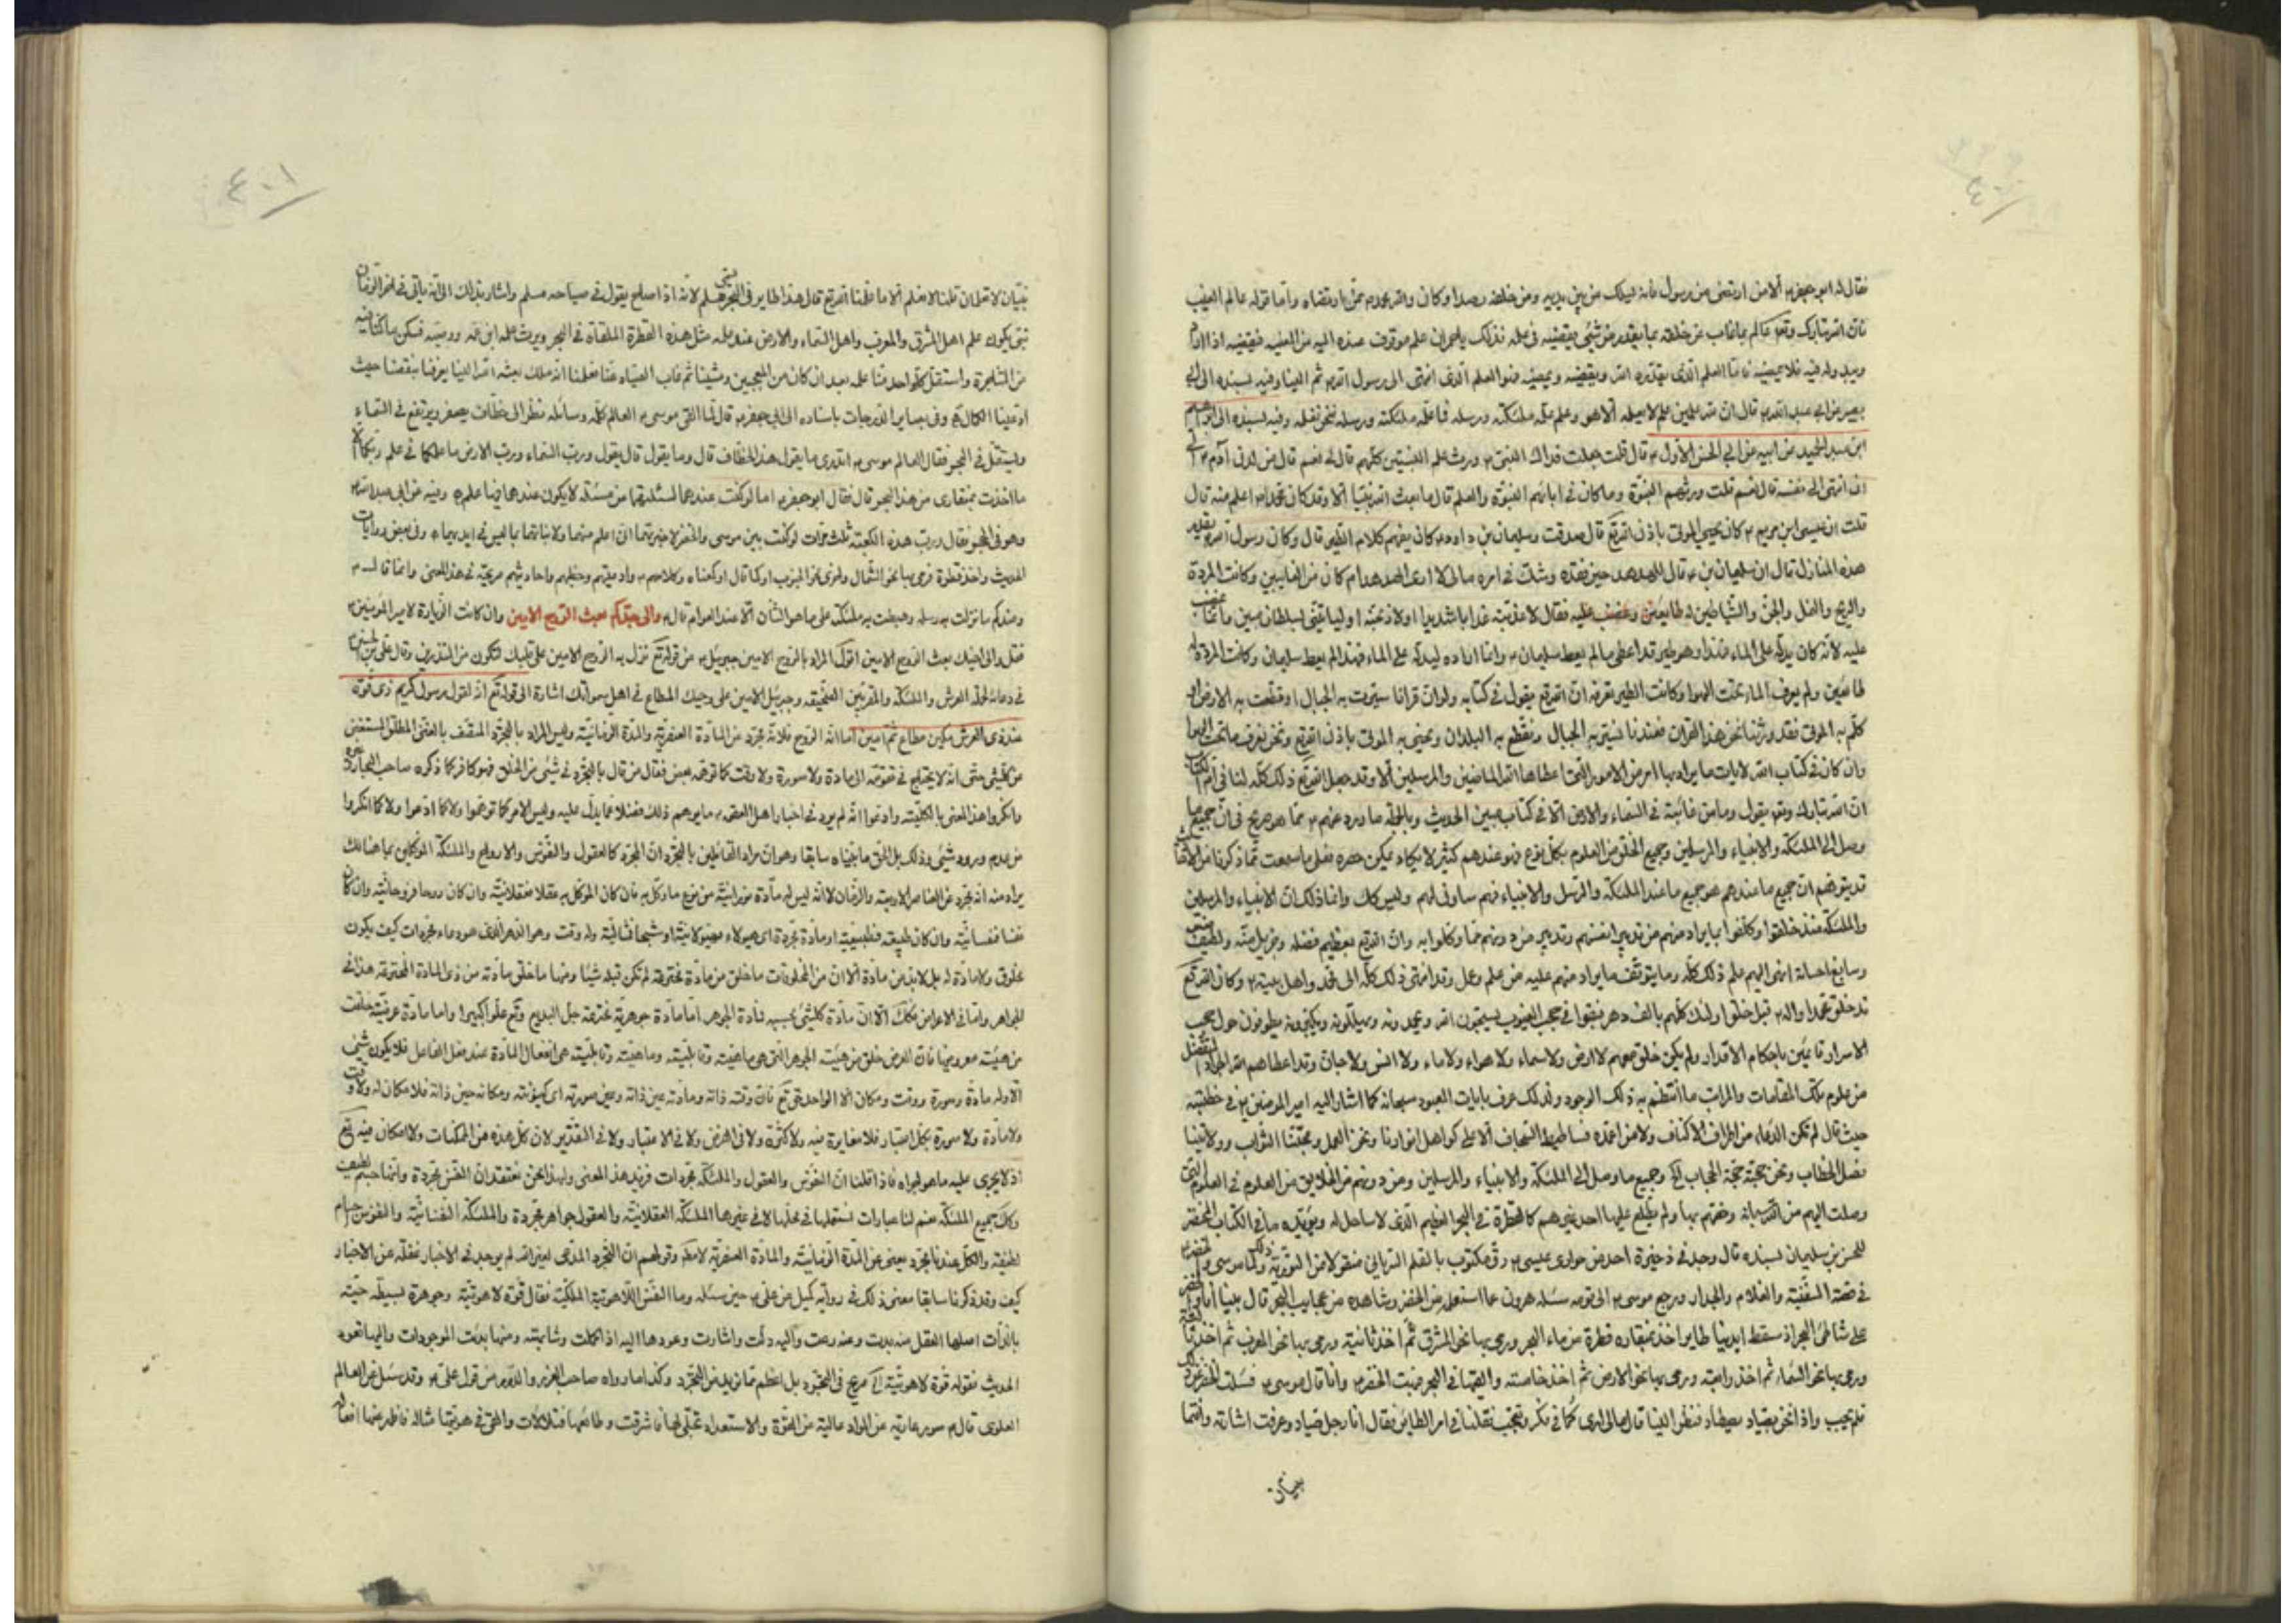 ٤٠٠
فقال له ابو جعفر ع الا من ارتضى من رسول فانه يسلك من بين يديه ومن خلفه رصدا وكان والله محمد ممن ارتضاه واما قوله عالم الغيب
فان الله تبارك وتعالى عالم بما غاب عن خلقه بما يقدر من شئ ويقضيه في علمه فذلك يا حمران علم موقوف عنده اليه من المشيه فيقضيه اذا اراد
ويبدو له فيه فلا يمضيه فاما العلم الذى يقدره الله ويقضيه ويمضيه فهو العلم الذى انتهى الى رسول الله ثم الينا وفيه بسنده الى ابى
بصير عن ابى عبد الله قال ان لله علمين علم لا يعلمه الا هو وعلم علمه ملئكته ورسله فما علمه ملئكته ورسله فنحن نعلمه وفيه بسنده الى ابراهيم
ابن عبد الحميد عن ابيه عن ابى الحسن الاول ع قال قلت جعلت فداك النبى ورث علم النبيين كلهم قال لى نعم قال من لدن آدم ع الى
ان انتهى الى نفسه قال نعم قلت ورثهم النبوة وما كان فى ابائهم النبوة والعلم قال ما بعث الله نبيا الا وقد كان محمد اعلم منه قال
قلت ان عيسى ابن مريم ع كان يحيى الموتى باذن الله تع قال صدقت وسليمان بن داود كان يفهم كلام الطير قال وكان رسول الله يقدر على
هذه المنازل فقال ان سليمان بن ع قال للهدهد حين فقده وشك فى امره مالى لا ارى الهدهد ام كان من الغايبين وكانت المردة
والريح والنمل والجن والشياطين له طايعين وغضب عليه فقال لاعذبنه عذابا شديدا اولاذبحنه او لياتينى بسلطان مبين وانما غضب
عليه لانه كان يدله على الماء فهذا وهو طير قد اعطى ما لم يعط سليمان وانما اراده ليدله على الماء فهذا لم يعط سليمان وكانت المردة له
طائعين ولم يعرف الماء تحت الهوا وكانت الطير تعرفه ان الله تع يقول فى كتابه ولو ان قرانا سيرت به الجبال او قطعت به الارض او
كلم به الموتى فقد ورثنا نحن هذا القران فعندنا ما نسير به الجبال ونقطع به البلدان ونحيى به الموتى باذن الله تع ونحن نعرف ما تحت الهوا
وان كان فى كتاب الله لايات ما يراد بها امر من الامور التى اعطاها الله الماضين والمرسلين الا وقد جعل الله تع ذلك كله لنا فى ام الكتاب
ان الله تبارك وتع يقول وما من غائبة فى السماء والارض الا فى كتاب مبين الحديث وبالجملة ما ورد عنهم ع مما هو صريح فى ان جميع ما
وصل الى الملئكة والانبياء والمرسلين وجميع الخلق من العلوم بكل نوع فهو عندهم كثير لا يكاد يمكن حصره فعلى ما سمعت مما ذكرنا من الاحاديث
قد يتوهم ان جميع ما عندهم هو جميع ما عند الملئكة والرسل والانبياء فهم مساوى لهم وليس كك وانما ذلك ان الانبياء والمرسلين
والملئكة منذ خلقوا وكلفوا بما يراد منهم من تدبير انفسهم وتدبير من دونهم مما وكلوا به وان الله تع بعظيم فضله وجزيل منه ولطيف
وسابغ احسانه انهى اليهم علم ذلك كله وما يتوقف ما يراد منهم عليه من علم وعمل وقد انتهى ذلك كله الى محمد واهل بيته ع وكان الله تع
قد خلق محمدا واله ع قبل خلق اولئك كلهم بالف دهر فبقوا فى حجب الغيوب يسبحون الله ويحمدونه ويهللونه ويكبرونه يطوفون حول حجب
الاسرار قائمين باحكام الاقدار ولم يكن خلق معهم لا ارض ولا سماء ولا هواء ولا ماء ولا انس ولا جان وقد اعطاهم الله الجواد المتفضل
من علوم تلك المقامات والمراتب ما انتظم به ذلك الوجود ولذلك عرف بايات المعبود سبحانه كما اشار اليه امير المؤمنين ع فى خطبته
حيث قال لم تكن الدعاء من اطراف الاكناف ولا من اعمدة فساطيط السجاف الا على كواهل انوارنا ونحن العمل ومحبتنا الثواب وولايتنا
فصل الخطاب ونحن حجبة حجة الحجاب الخ وجميع ما وصل الى الملئكة والانبياء والمرسلين ومن دونهم من الخلايق من العلوم فى العلوم التى
وصلت اليهم من الله سبحانه وخصهم بها ولم يطلع عليها احد غيرهم كالقطرة فى البحر العظيم الذى لا ساحل له ويؤيده ما فى الكتاب المحتضر
للحسن بن سليمان بسنده قال وجد فى ذخيرة احد من حوارى عيسى ع رق مكتوب بالقلم السريانى منقولا من التورية وذلك لما موسى والخضر
فى قصة السفينة والغلام والجدار ورجع موسى ع الى قومه سئله هرون عما استعلم من الخضر وشاهده من عجايب البحر قال بينا انا والخضر
على شاطئ البحر اذ سقط ايدينا طاير اخذ بمنقاره قطرة من ماء البحر ورمى بها نحو المشرق ثم اخذ ثانية ورمى بها نحو المغرب ثم اخذ ثالثة
ورمى بها نحو السماء ثم اخذ رابعة ورمى بها نحو الارض ثم اخذ خامسة والقاها فى البحر فبهت الخضر وانا قال موسى ع فسئلت الخضر عن ذلك
فلم يجب واذا نحن بصياد يصطاد فنظر الينا قال مالى ارى كما فى فكر وتعجب فقلنا فى امر الطائر فقال انا رجل صياد وعرفت اشارته وانتما
نبيان
٤٠١
نبيان لا تعلمان قلنا لا نعلم الا ما علمنا الله تع قال هذا طاير فى البحر يسمى مسلم لانه اذا صاح يقول فى صياحه مسلم واشار بذلك الى انه ياتى فى اخر الزمان
نبى يكون علم اهل المشرق والمغرب واهل السماء والارض عند علمه مثل هذه القطرة الملقاة فى البحر ويرث علمه ابن عمه ووصيه فسكن ما كنا فيه
من المشاجرة واستقل كل واحد منا علمه بعد ان كان من المعجبين ومشينا ثم غاب الصياد عنا فعلمنا انه ملك بعثه الله الينا يعرفنا بنقصنا حيث
ادعينا الكمال وفى بصاير الدرجات باسناده الى ابى جعفر ع قال لما لقى موسى ع العالم كلمه وسائله نظر الى خطاف يصفر ويرتفع فى السماء
ويتسفل فى البحر فقال العالم لموسى ع اتدرى ما يقول هذا الخطاف قال وما يقول قال يقول ورب السماء ورب الارض ما علمكما فى علم ربكما الا
ما اخذت بمنقارى من هذا البحر قال فقال ابو جعفر ع اما لو كنت عندهما لسئلتهما عن مسئلة لا يكون عندهما فيها علم وفيه عن ابى عبد الله ع
وهو فى الحجر فقال ورب هذه الكعبة ثلث مرات لو كنت بين موسى والخضر لاخبرتهما انى اعلم منهما ولانباتهما بما ليس فى ايديهما وفى بعض روايات
الحديث واخذ قطرة فرمى بها نحو الشمال واخرى نحو الجنوب او كما قال او كمعناه وكلامهم وادعيتهم وخطبهم واحاديثهم صريحة فى هذا المعنى وانما قال ع
وعندكم ما نزلت به رسله وهبطت به ملئكته على ما هو الشان الا عند العوام قال ع والى جدكم بعث الروح الامين وان كانت الزيارة لامير المؤمنين ع
فقل والى اخيك بعث الروح الامين اقول المراد بالروح الامين جبرئيل ع من قوله تع نزل به الروح الامين على قلبك لتكون من المنذرين وقال على بن الحسين ع
فى دعائه لحملة العرش والملئكة والمقربين الصحيفه وجبرئيل الامين على وحيك المطاع فى اهل سمواتك اشارة الى قوله تع انه لقول رسول كريم ذى قوة
عند ذى العرش مكين مطاع ثم امين اما انه الروح فلانه مجرد عن المادة العنصرية والمدة الزمانية وليس المراد بالمجرد المتصف بالغنى المطلق المستغنى
عن كل شئ حتى انه لا يحتاج فى تقومه الى مادة ولا صورة ولا وقت كما توهمه بعض فقال من قال بالمجرد فى شئ من الخلق فهو كافر كما ذكره صاحب البحار وغيره
وانكروا هذا المعنى بالكلية وادعوا انه لم يرد فى اخبار اهل العصمة ع ما يوهم ذلك فضلا عما يدل عليه وليس الامر كما توهموا ولا كما ادعوا ولا كما انكروا
من عدم ورود شئ وذلك بل الحق ما بيناه سابقا وهو ان مراد القائلين بالمجرد ان المجرد كالعقول والنفوس والارواح والملئكة الموكلين بما هنالك
يراد منه انه مجرد عن العناصر الاربعة والزمان لا انه ليس له مادة نورانية من نوع ما وكل به فان كان الموكل به عقلا فعقلانية وان كان روحا فروحانية وان كان
نفسا نفسانية وان كان طبيعة فطبيعية او مادة مجردة اى هيولاء هيولانية او شبحا فمثالية وله وقت وهو الدهر الذى هو وعاء المجردات كيف يكون
مخلوق ولا مادة له بل لا بد من مادة الا ان من المخلوقات ما خلق من مادة مخترعة لم تكن قبله شيئا ومنها ما خلق مادته من ذى المادة المخترعة هذا فى
الجواهر واما فى الاعراض فكك الا ان مادة كل شئ بحسبه فمادة الجوهر اما مادة جوهرية مخترعة جل البديع وتع علوا كبيرا واما مادة عرضية خلقت
من هيئة معروضها فان العرض خلق من هيئة الجوهر التى هى ماهيته وقابليته وماهيته وقابليته هى انفعال المادة عند فعل الفاعل فلا يكون شئ
الا وله مادة وصورة ووقت ومكان الا الواحد حق تع فان وقته ذاته ومادته عين ذاته وعين صورته اى كينونته ومكانه حين ذاته فلا مكان له ولا وقت
ولا مادة ولا صورة بكل اعتبار فلا مغايرة فيه ولا كثرة ولا فى الفرض ولا فى الاعتبار ولا فى التقدير لان كل هذه من الممكنات ولا امكان فيه تع
اذ لا يجرى عليه ما هو اجراه فاذا قلنا ان النفوس والعقول والملئكة مجردات فنريد هذا المعنى ولهذا نحن نعتقد ان النفس مجردة وانها جسم لطيف
وكك جميع الملئكة نعم لنا عبارات نستعملها فى محلها لا فى غيرها الملئكة العقلانية والعقول جواهر مجردة والملئكة النفسانية والنفوس اجسام
لطيفة والكل عندنا مجرد يعنى عن المدة الزمانية والمادة العنصرية لا مطلقا وقولهم ان التجرد المدعى لغير الله لم يوجد فى الاخبار غفلة عن الاخبار
كيف وقد ذكرنا سابقا معنى ذلك فى رواية كميل عن على ع حين سئله وما النفس اللاهوتية الملكية فقال قوة لاهوتية وجوهرة بسيطة حية
بالذات اصلها العقل منه بدت وعنه دعت واليه دلت واشارت وعودها اليه اذا كملت وشابهته ومنها بدئت الموجودات واليها تعود
الحديث فقوله قوة لاهوتية الخ صريح فى التجرد بل اعظم مما نريد من التجرد وكذا ما رواه صاحب الغرر والدرر من قول على ع وقد سئل عن العالم
العلوى قال ع صور عارية عن المواد عالية عن القوة والاستعداد تجلى لها فاشرقت وطالعها فتلألأت والقى فى هويتها مثاله فاظهر عنها افعاله